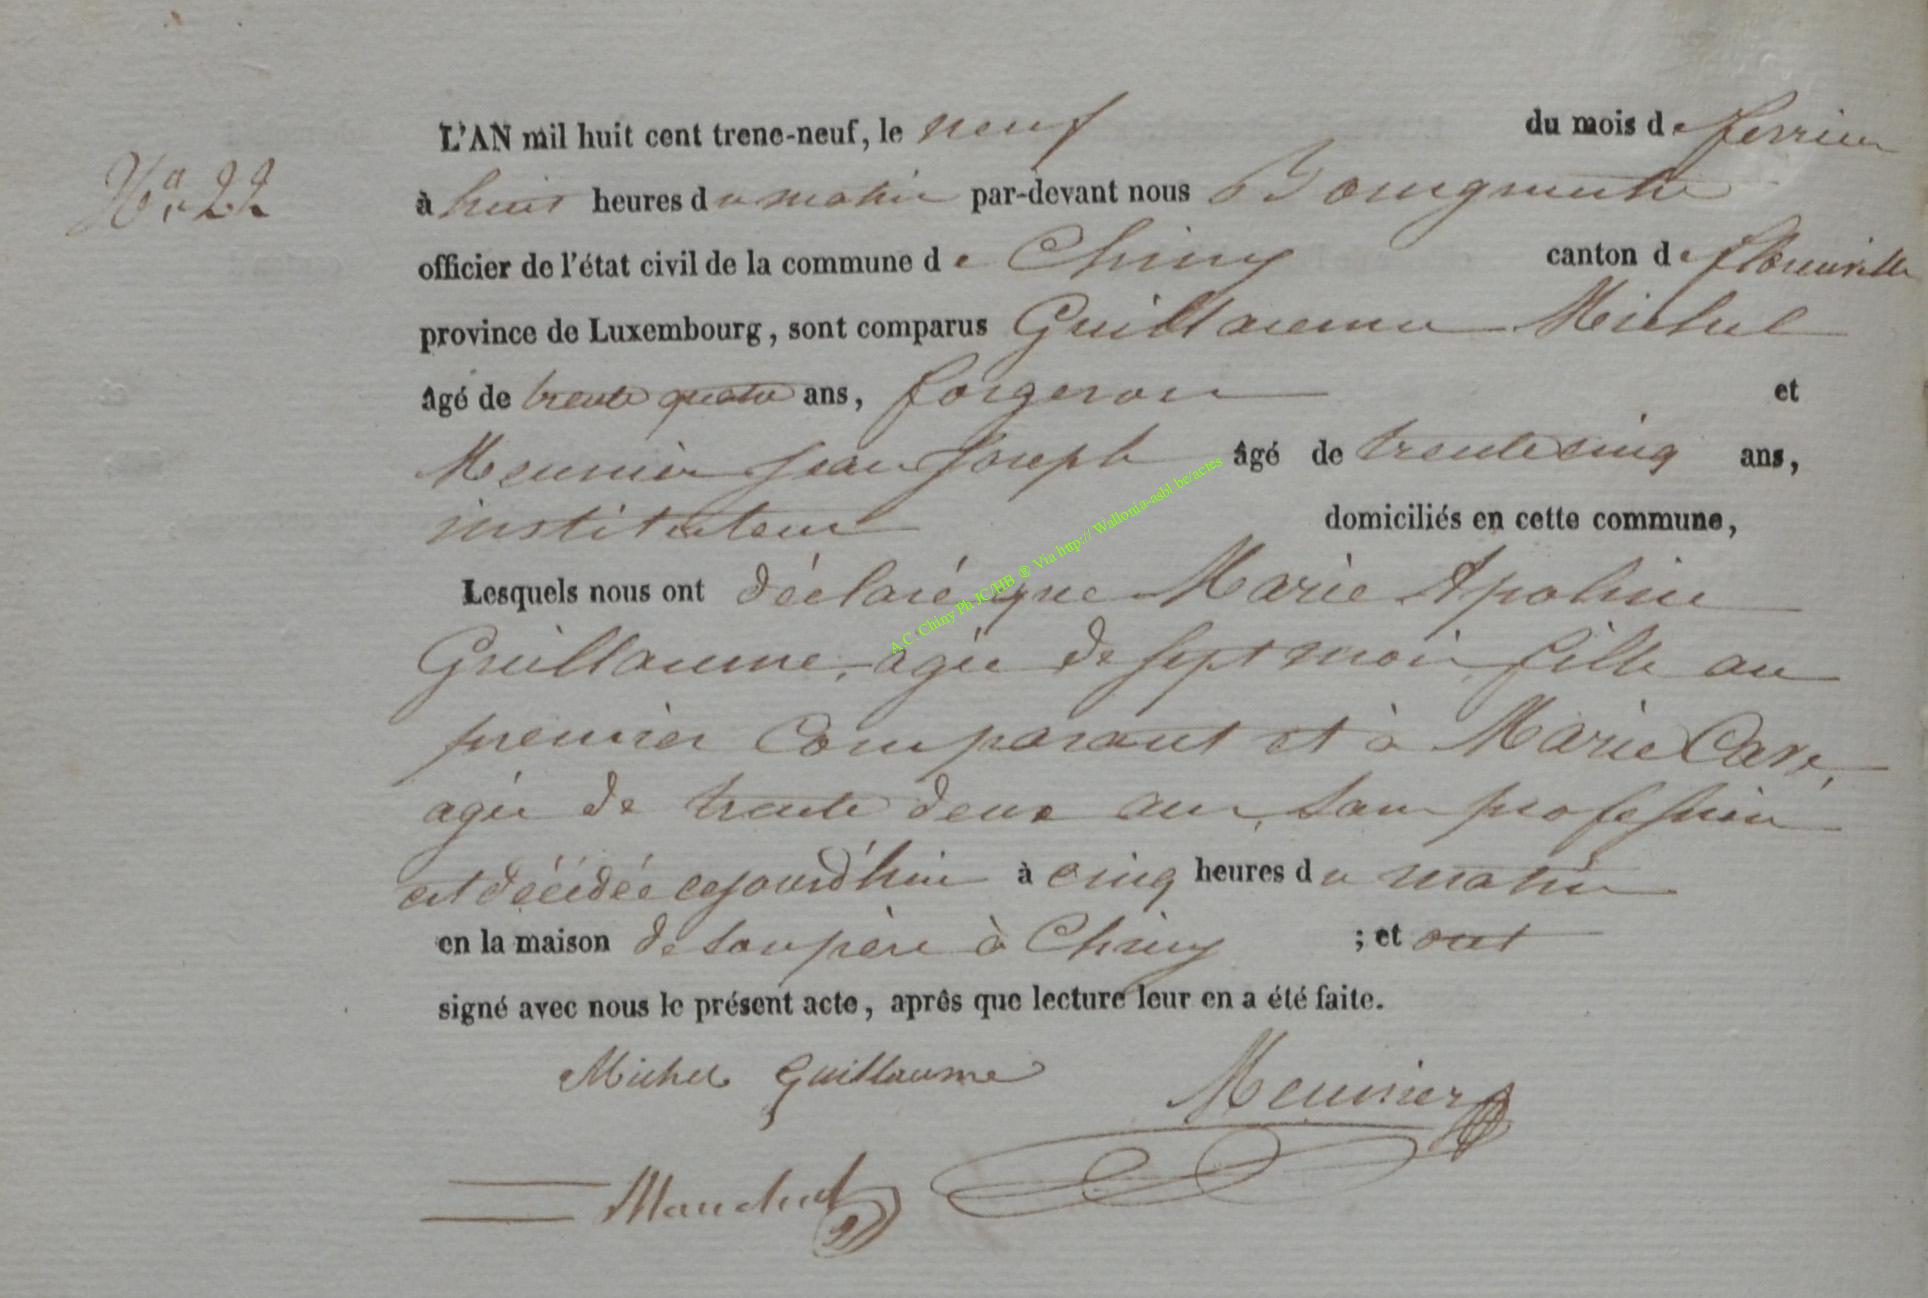 L'AN mil huit cent trene-neuf, le neuf du mois de fevrier
N° 22
à huit heures du matin par-devant nous
officier de l'état civil de la commune de Chiny canton de florenville
province de Luxembourg, sont comparus Guillaume Michel
âgé de trente quatre ans, forgeron et
Meunier Jean Joseph âgé de trente cinq ans,
instituteur domiciliés en cette commune,
Lesquels nous ont déclaré que Marie Apoline
Guillaume, agée de sept mois, fille au
premier Comparant et à Marie
agée de trente deux ans, sans profession
est décédée cejourd'hui à cinq heures du matin
en la maison de son père à Chiny ; et ont
signé avec nous le présent acte, après que lecture leur en a été faite.
Michel Guillaume Meunier
A.C. Chiny Ph JC/HB ® Via http:// Wallonia-asbl.be/actes